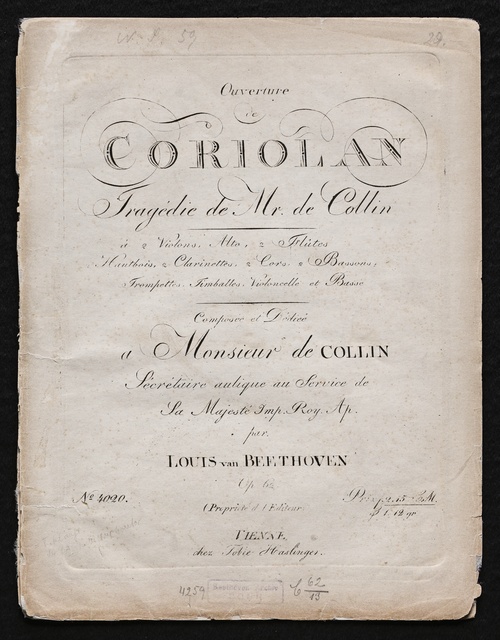 29.
Ouverture
de
CORIOLAN
Tragédie de Mr. de Collin
à 2 Violons, Alto, 2 Flûtes
Hautbois, 2 Clarinettes, 2 Cors, 2 Bassons,
Trompettes, Timballes, Violoncelle et Basse
Composée et Dediée
a Monsieur de COLLIN
Sécrétaire aulique au Service de
Sa Majesté Imp. Roy. Ap.
par
LOUIS van BEETHOVEN
Op. 62
No 4020.
(Proprieté de l'Editeur)
VIENNE,
chez Tobie Haslinger.
4259
62
13